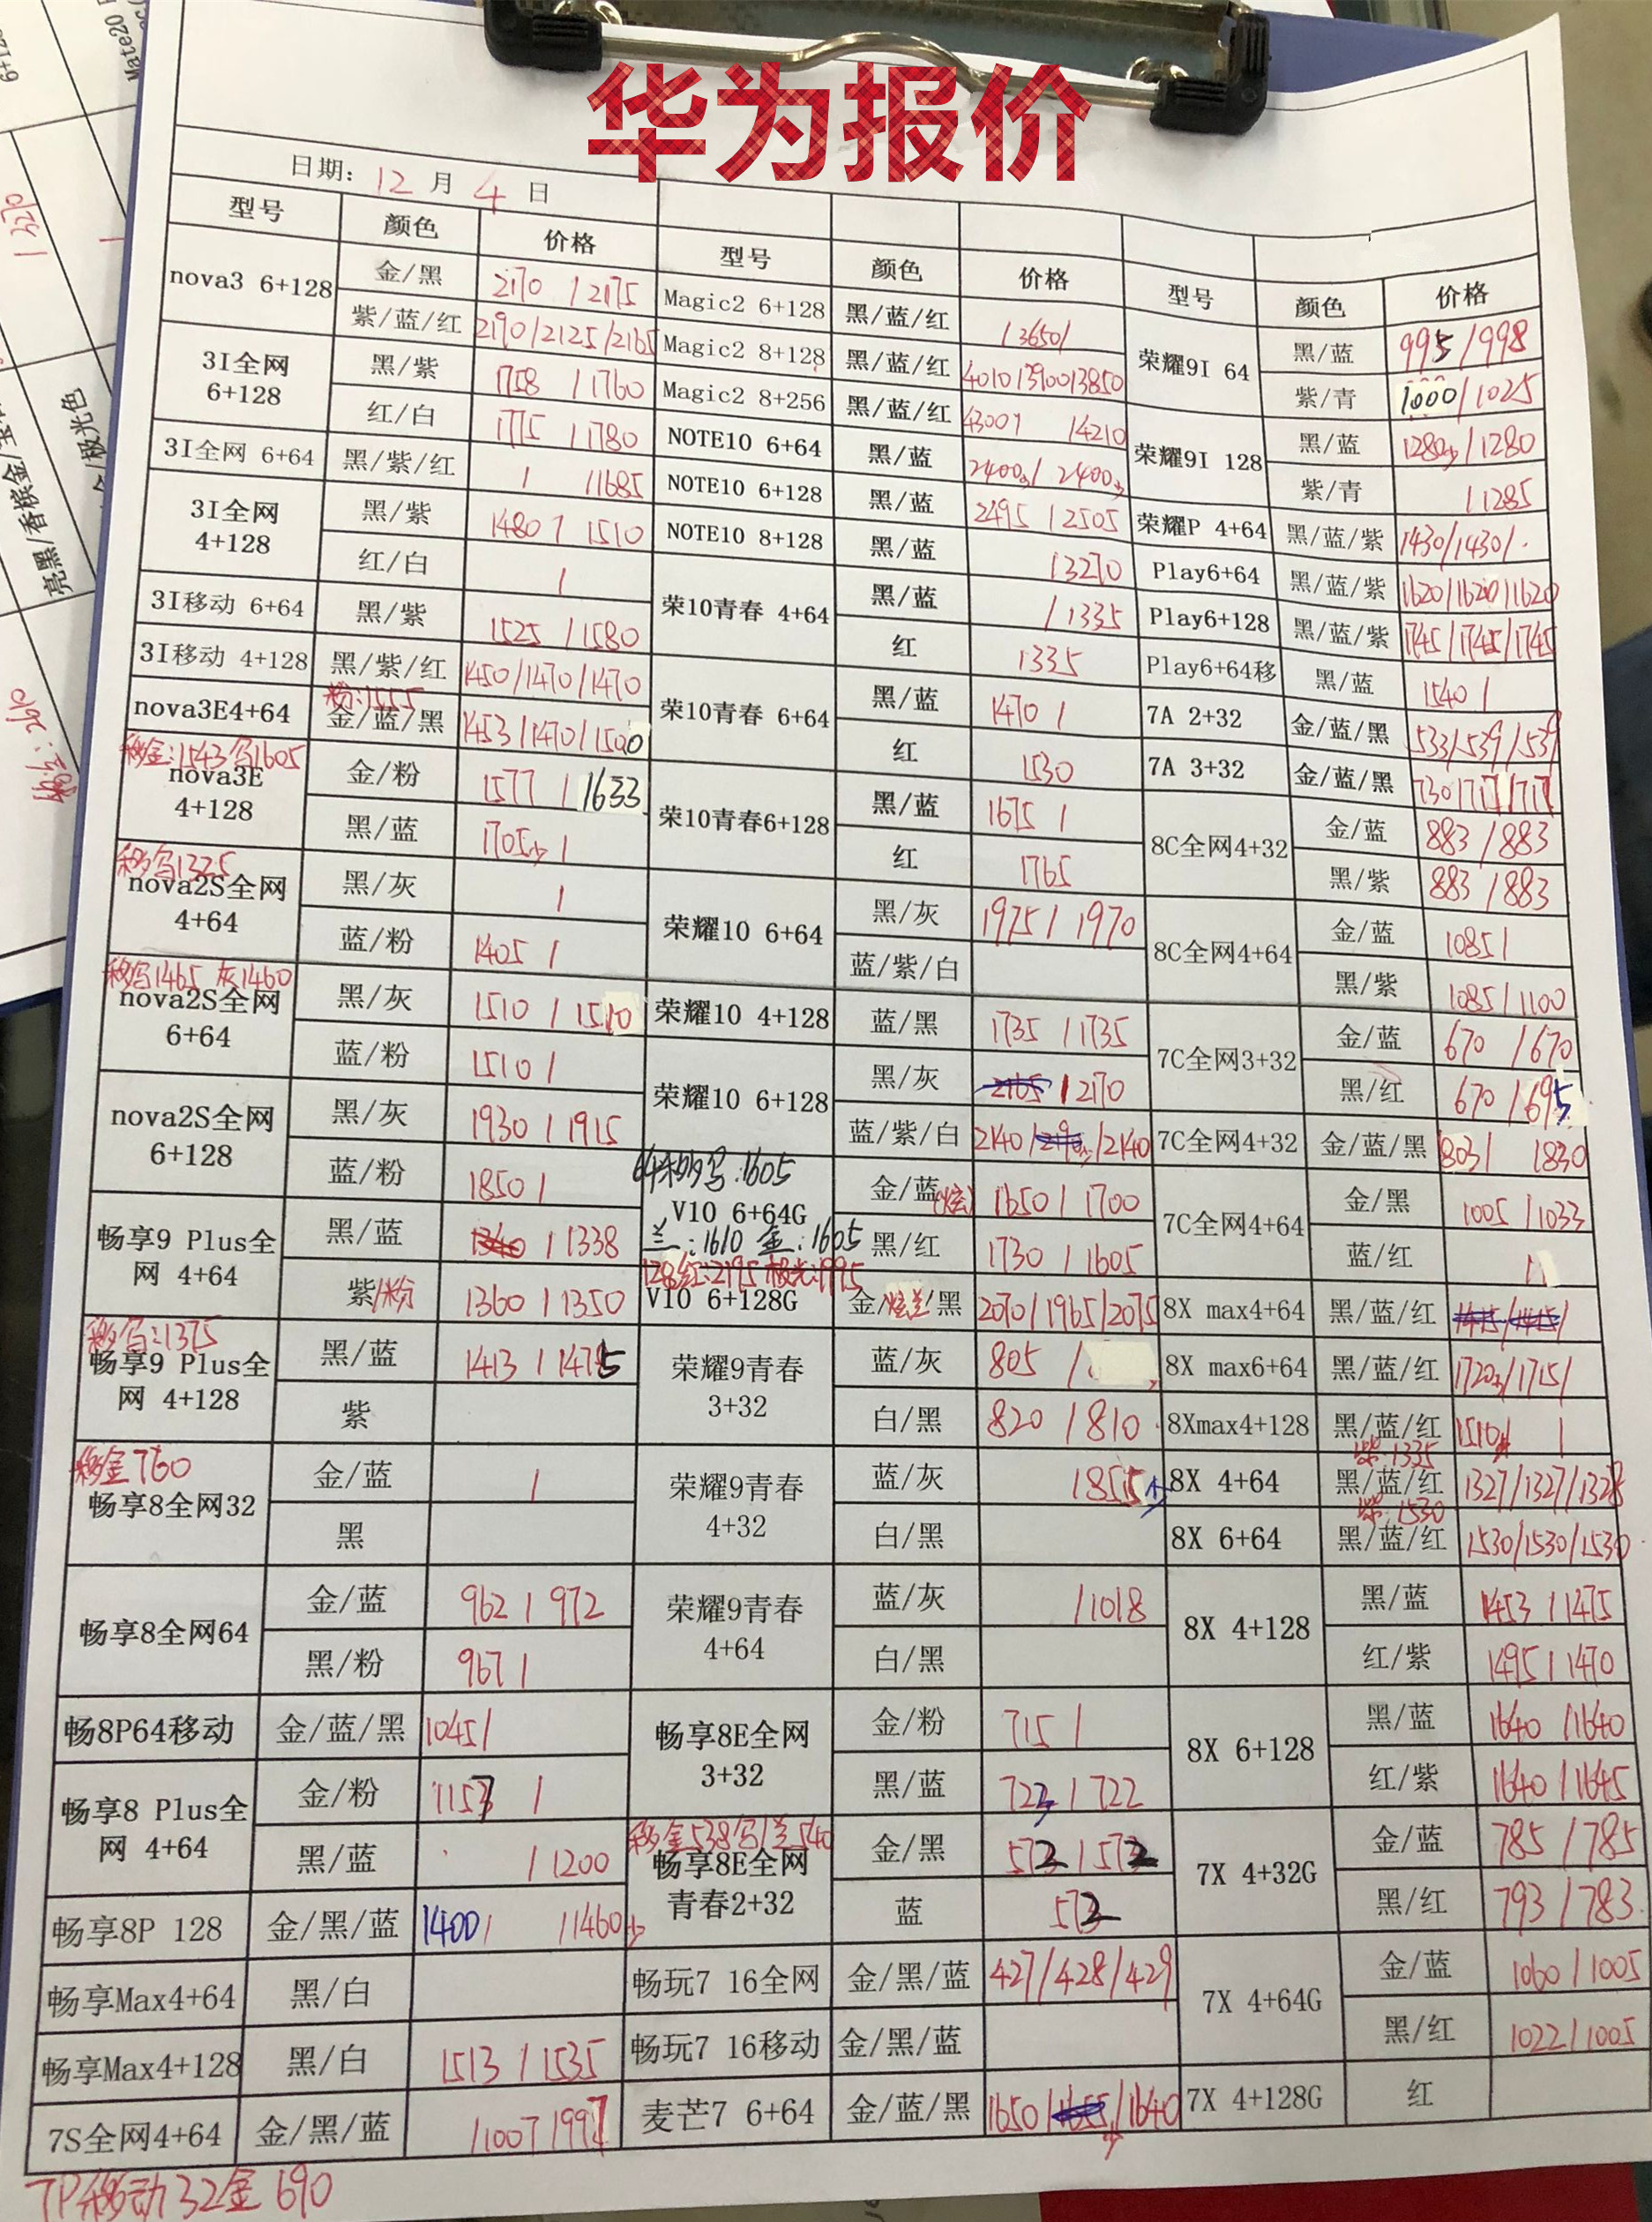 华为报价
日期: 12 月 4 日
型号 颜色 价格 型号 颜色 价格 型号 颜色 价格
nova3 6+128 金/黑 2170 / 2175
紫/蓝/红 2190/2125/2165
3I全网 6+128 黑/紫 1758 / 1760
红/白 1775 / 1780
3I全网 6+64 黑/紫/红 / /1685
3I全网 4+128 黑/紫 1480 / 1510
红/白 /
3I移动 6+64 黑/紫 1525 / 1580
3I移动 4+128 黑/紫/红 1450/1470/1470
粉:1555
nova3E4+64 金/蓝/黑 1453/1470/1500
移金:1543 乌1605
nova3E 4+128 金/粉 1577 / 1633
黑/蓝 1705少 /
移乌1325
nova2S全网 4+64 黑/灰 /
蓝/粉 1405 /
移乌1465 灰1460
nova2S全网 6+64 黑/灰 1510 / 1510
蓝/粉 1510 /
nova2S全网 6+128 黑/灰 1930 / 1915
蓝/粉 1850 /
畅享9 Plus全网 4+64 黑/蓝 1340 / 1338
紫/粉 1360 / 1350
移乌:1375
畅享9 Plus全网 4+128 黑/蓝 1413 / 1475
紫
移金760
畅享8全网32 金/蓝 /
黑
畅享8全网64 金/蓝 962 / 972
黑/粉 967 /
畅8P64移动 金/蓝/黑 1045/
畅享8 Plus全网 4+64 金/粉 1157 /
黑/蓝 / 1200
畅享8P 128 金/黑/蓝 1400/ /1460少
畅享Max4+64 黑/白
畅享Max4+128 黑/白 1513 / 1535
7S全网4+64 金/黑/蓝 /1007/997
Magic2 6+128 黑/蓝/红 /3650/
Magic2 8+128 黑/蓝/红 4010/3900/3850
Magic2 8+256 黑/蓝/红 4300/ /4210
NOTE10 6+64 黑/蓝 2400少/ 2400少
NOTE10 6+128 黑/蓝 2495 / 2505
NOTE10 8+128 黑/蓝 /3270
荣10青春 4+64 黑/蓝 / 1335
红 1335
荣10青春 6+64 黑/蓝 1470 /
红 1530
荣10青春6+128 黑/蓝 1675 /
红 1765
荣耀10 6+64 黑/灰 1975 / 1970
蓝/紫/白
荣耀10 4+128 蓝/黑 1735 / 1735
荣耀10 6+128 黑/灰 2165 / 2170
蓝/紫/白 2140/ /2140
64移动乌:1605
V10 6+64G 金/蓝(炫) 1650 / 1700
兰:1610 金:1605 黑/红 1730 / 1605
128红:2195 极光:1995
V10 6+128G 金/炫兰/黑 2070/1965/2075
荣耀9青春 3+32 蓝/灰 805 /
白/黑 820 / 810
荣耀9青春 4+32 蓝/灰 /855个
白/黑
荣耀9青春 4+64 蓝/灰 /1018
白/黑
畅享8E全网 3+32 金/粉 715 /
黑/蓝 723 / 722
移金538乌/兰540
畅享8E全网 青春2+32 金/黑 572 / 572
蓝 572
畅玩7 16全网 金/黑/蓝 427/428/429
畅玩7 16移动 金/黑/蓝
麦芒7 6+64 金/蓝/黑 1650/1655/1640
荣耀9I 64 黑/蓝 995 / 998
紫/青 1000 / 1025
荣耀9I 128 黑/蓝 1280少 / 1280
紫/青 / 1285
荣耀P 4+64 黑/蓝/紫 1430/1430/
Play6+64 黑/蓝/紫 1620/1620/1620
Play6+128 黑/蓝/紫 1745/1745/1745
Play6+64移 黑/蓝 1540 /
7A 2+32 金/蓝/黑 533/539/539
7A 3+32 金/蓝/黑 730/717/717
8C全网4+32 金/蓝 883 / 883
黑/紫 883 / 883
8C全网4+64 金/蓝 1085/
黑/紫 1085 / 1100
7C全网3+32 金/蓝 670 / 670
黑/红 670 / 695
7C全网4+32 金/蓝/黑 803/ /830
7C全网4+64 金/黑 1005 / 1033
蓝/红 /
8X max4+64 黑/蓝/红 1415/1415/
8X max6+64 黑/蓝/红 1720少/1715/
8Xmax4+128 黑/蓝/红 1510 /
紫:1335
8X 4+64 黑/蓝/红 1327/1327/1328
紫:1530
8X 6+64 黑/蓝/红 1530/1530/1530
8X 4+128 黑/蓝 1453 / 1475
红/紫 1495 / 1470
8X 6+128 黑/蓝 1640 / 1640
红/紫 1640 / 1645
7X 4+32G 金/蓝 785 / 785
黑/红 793 / 783
7X 4+64G 金/蓝 1060 / 1005
黑/红 1022 / 1005
7X 4+128G 红
7P移动32金 690
Mate20
亮黑/香槟金/
/极光色